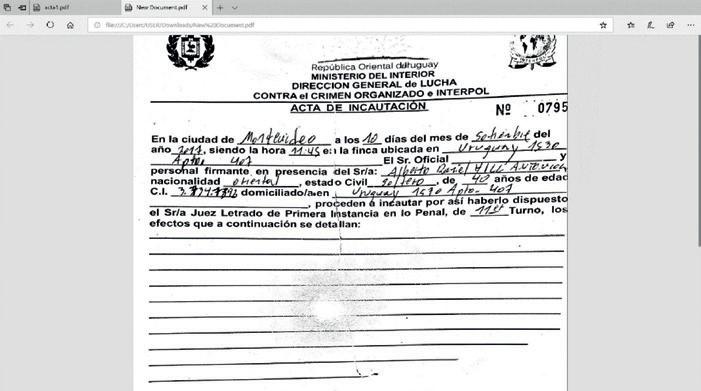 acta1.pdf
New Document.pdf
file:///C:/Users/USER/Downloads/New%20Document.pdf
República Oriental del Uruguay
MINISTERIO DEL INTERIOR
DIRECCION GENERAL de LUCHA
CONTRA el CRIMEN ORGANIZADO e INTERPOL
ACTA DE INCAUTACIÓN
Nº 0795
En la ciudad de Montevideo a los 10 días del mes de Setiembre del
año, siendo la hora 11:45 en la finca ubicada en Uruguay 1530
Apto. 407 El Sr. Oficial y
personal firmante, en presencia del Sr/a: Alberto
nacionalidad oriental, estado Civil soltero, de 40 años de edad
C.I. domiciliado/a en Uruguay 1530 Apto. 407
, proceden a incautar por así haberlo dispuesto
el Sr/a Juez Letrado de Primera Instancia en lo Penal, de Turno, los
efectos que a continuación se detallan: